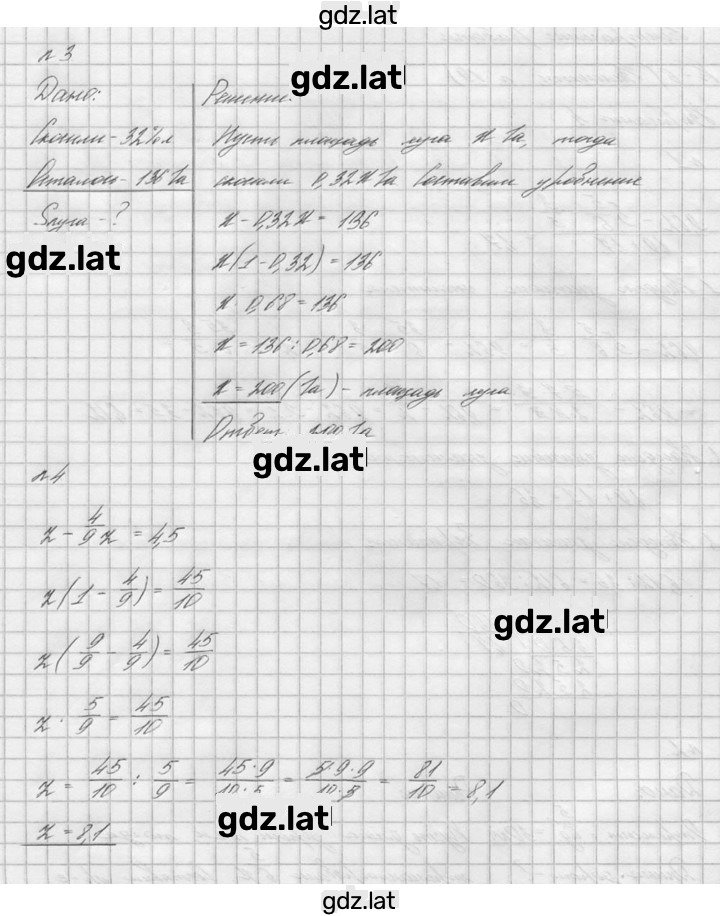 gdz.lat
№3
gdz.lat
Дано: Решение:
Скосили - 32% л Пусть площадь луга x га, тогда
Осталось - 136 га скосили 0,32x га Составим уравнение
Sлуга - ? x - 0,32x = 136
gdz.lat
x(1 - 0,32) = 136
x · 0,68 = 136
x = 136 : 0,68 = 200
x = 200 (га) - площадь луга
Ответ 200 га
gdz.lat
№4
z - 4/9 z = 4,5
z(1 - 4/9) = 45/10
gdz.lat
z(9/9 - 4/9) = 45/10
z · 5/9 = 45/10
z = 45/10 : 5/9 = 45·9/10·5 = 5·9·9/10·5 = 81/10 = 8,1
gdz.lat
z = 8,1
gdz.lat